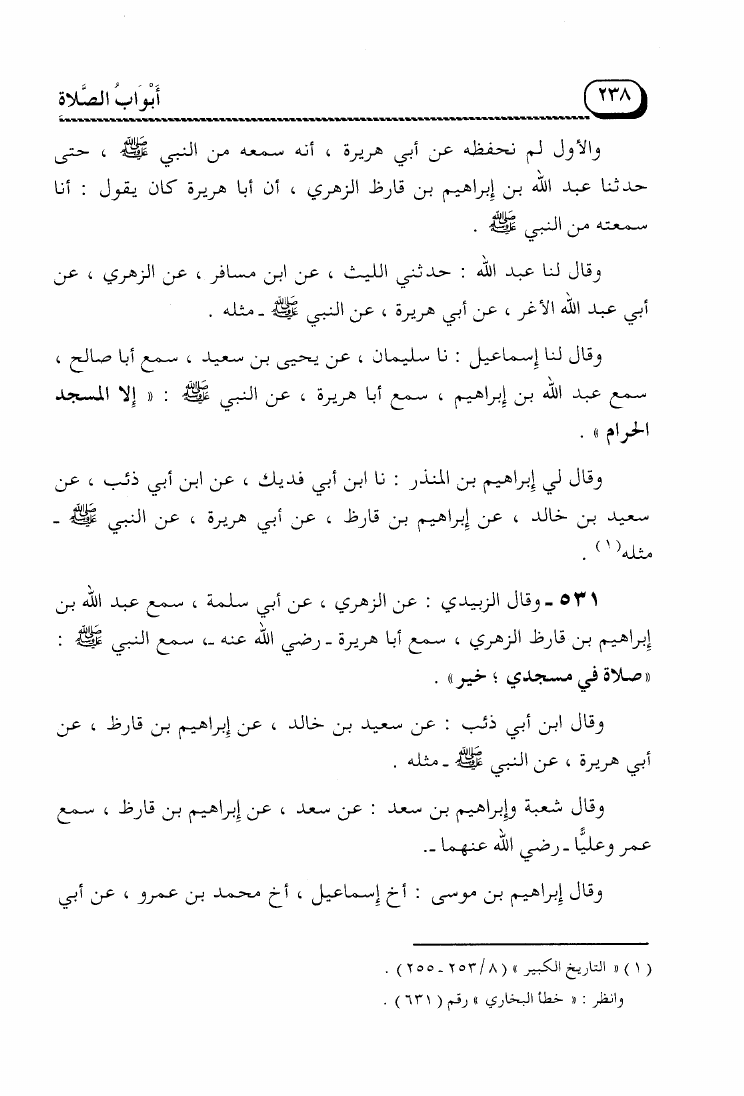 ٢٣٨ أَبْوَابُ الصَّلَاة
والأول لم نحفظه عن أبي هريرة ، أنه سمعه من النبي ﷺ ، حتى
حدثنا عبد الله بن إبراهيم بن قارظ الزهري ، أن أبا هريرة كان يقول : أنا
سمعته من النبي ﷺ .
وقال لنا عبد الله : حدثني الليث ، عن ابن مسافر ، عن الزهري ، عن
أبي عبد الله الأغر ، عن أبي هريرة ، عن النبي ﷺ ـ مثله .
وقال لنا إسماعيل : نا سليمان ، عن يحيى بن سعيد ، سمع أبا صالح ،
سمع عبد الله بن إبراهيم ، سمع أبا هريرة ، عن النبي ﷺ : « إلا المسجد
الحرام » .
وقال لي إبراهيم بن المنذر : نا ابن أبي فديك ، عن ابن أبي ذئب ، عن
سعيد بن خالد ، عن إبراهيم بن قارظ ، عن أبي هريرة ، عن النبي ﷺ ـ
مثله(١) .
٥٣١ ـ وقال الزبيدي : عن الزهري ، عن أبي سلمة ، سمع عبد الله بن
إبراهيم بن قارظ الزهري ، سمع أبا هريرة ـ رضي الله عنه ـ، سمع النبي ﷺ :
«صلاة في مسجدي ؛ خير» .
وقال ابن أبي ذئب : عن سعيد بن خالد ، عن إبراهيم بن قارظ ، عن
أبي هريرة ، عن النبي ﷺ ـ مثله .
وقال شعبة وإبراهيم بن سعد : عن سعد ، عن إبراهيم بن قارظ ، سمع
عمر وعليًّا ـ رضي الله عنهما ـ.
وقال إبراهيم بن موسى : أخ إسماعيل ، أخ محمد بن عمرو ، عن أبي
(١) « التاريخ الكبير » (٨/ ٢٥٣ ـ ٢٥٥) .
وانظر : « خطأ البخاري » رقم (٦٣١) .